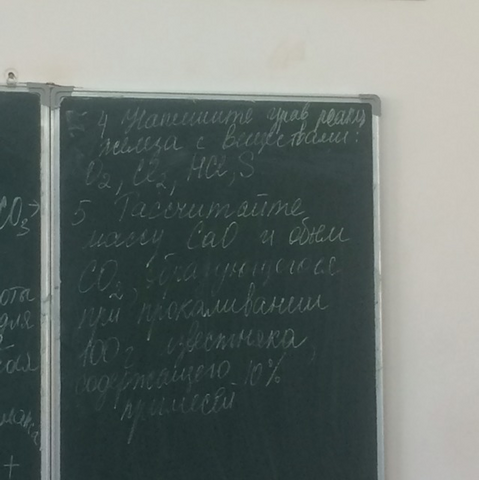 4 Напишите урав реакц
железа с веществами:
O2, Cl2, HCl, S
5 Рассчитайте
массу CaO и объем
CO2, образующегося
при прокаливании
100г известняка,
содержащего 10%
примесей
CO3→
оты
для
+